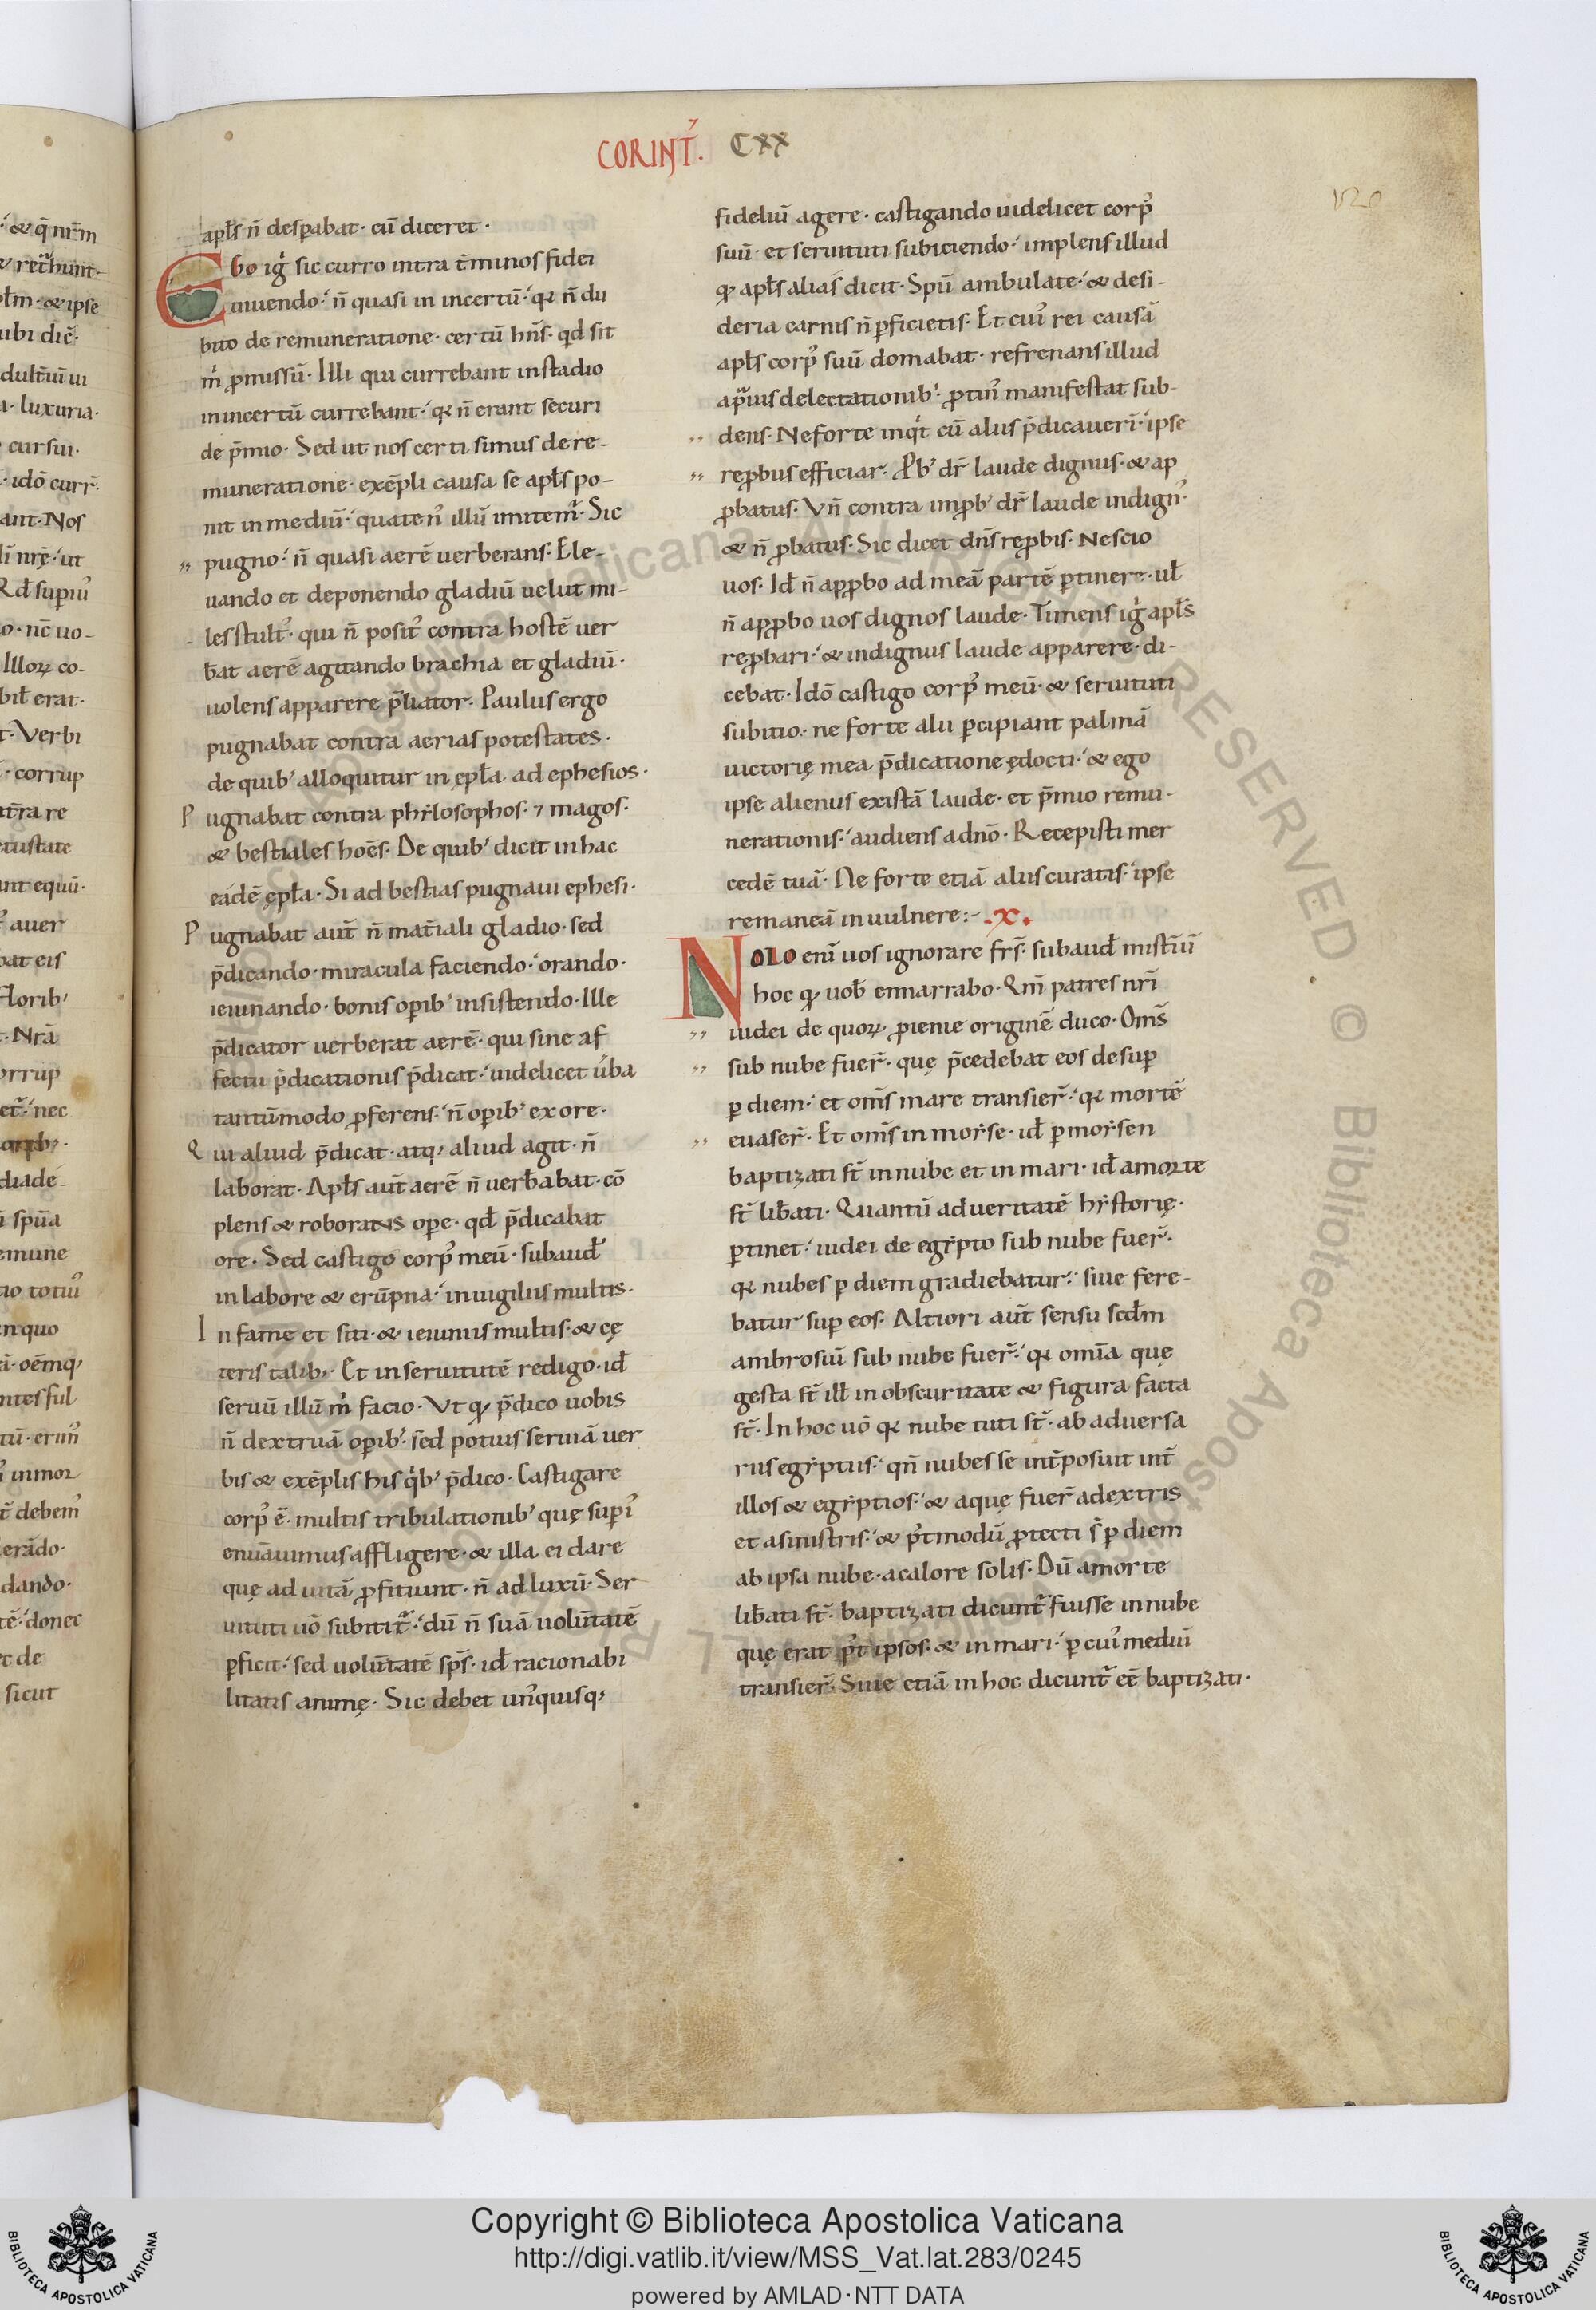 CORINT̄. CXX
120
apłs n̄ desꝑabat· cū diceret·
Ego ig̾ sic curro intra t̄minos fidei
uiuendo· n̄ quasi in incertū· qꝛ n̄ du
bito de remuneratione· certū hn̄s· qđ sit
m̾ ꝓmissū· Illi qui currebant in stadio
in incertū currebant· qꝛ n̄ erant securi
de p̄mio· Sed ut nos certi simus de re-
muneratione· exēpli causa se apłs po-
nit in mediū· quaten᾽ illū imitem̄· Sic
pugno· n̄ quasi aerē uerberans· Ele-
uando et deponendo gladiū uelut mi-
les stult᾽· qui n̄ posit᾽ contra hostē uer
b̄at aerē agitando brachia et gladiū·
uolens apparere p̄liator· Paulus ergo
pugnabat contra aerias potestates·
de quib᾽ alloquitur in epła ad ephesios·
Pugnabat contra phylosophos· ⁊ magos·
& bestiales hoēs· De quib᾽ dicit in hac
eádē ępła· Si ad bestias pugnaui ephesi·
Pugnabat aut̄ n̄ mat̄iali gladio· sed
p̄dicando· miracula faciendo· orando·
ieiunando· bonis oꝑib᾽ insistendo· Ille
p̄dicator uerberat aerē· qui sine af
fectu p̄dicationis p̄dicat· uidelicet ūba
tantūmodo ꝓferens· n̄ oꝑib᾽ ex ore·
Qui aliud p̄dicat· atq᾽ aliud agit· n̄
laborat· Apłs aut̄ aerē n̄ uerb̄abat· cō
plens & roborans oꝑe· qđ p̄dicabat
ore· Sed castigo corp᾽ meū· subauđ
in labore & erūpna· in uigiliis multis·
In fame et siti· & ieiuniis multis· & cę
teris talib᾽· Et in seruitutē redigo· iđ
seruū illū m̾ facio· Vt qꝫ p̄dico uobis
n̄ dextruā oꝑib᾽· sed potius seruiā uer
bis & exēplis his q̾b᾽ p̄dico· Castigare
corp᾽ ē· multis tribulationib᾽ quę suꝑi᾽
enūauimus affligere· & illa ei dare
quę ad uitā ꝓfitiunt· n̄ ad luxū· Ser
uituti uō subitit᷑· dū n̄ suā uolūtatē
ꝑficit· sed uolūtatē sp̄s· iđ racionabi
litatis animę· Sic debet un᾽quisq᾽
fideliū agere· castigando uidelicet corp᾽
suū· et seruituti subiciendo· implens illud
qꝫ apłs alias dicit· Spū ambulate· & desi-
deria carnis n̄ ꝑficietis· Et cui᾽ rei causā
apłs corp᾽ suū domabat· refrenans illud
a ꝓ̄iis delectationib᾽· ꝓtin᾽ manifestat sub-
dens· Ne forte inq̾t cū aliis p̄dicauerī· ipse
reꝓbus efficiar· Ꝓb᾽ dr̄ laude dignus· & ap
ꝓbatus· Vn̄ contra imꝓb᾽ dr̄ laude indign᾽·
& n̄ ꝓbatus· Sic dicet dn̄s reꝓbis· Nescio
uos· Iđ n̄ apꝓbo ad meā partē ꝑtinere· uł
n̄ apꝓbo uos dignos laude· Timens ig̾ apłs
reꝓbari· & indignus laude apparere· di-
cebat· Idō castigo corp᾽ meū· & seruituti
subitio· ne forte alii ꝑcipiant palmā
uictorię mea p̄dicatione ędocti· & ego
ipse alienus existā laude· et p̄mio remu-
nerationis· audiens a dn̄o· Recepisti mer
cedē tuā· Ne forte etiā aliis curatis· ipse
remaneā in uulnere:- .x.
Nolo enī uos ignorare frs̄· subauđ mist̄iū
hoc qꝫ uob̄ ennarrabo· Qm̄ patres nr̄i
iudei de quoꝝ ꝓienie originē duco· Oms̄
sub nube fuer̄· quę p̄cedebat eos desuꝑ
ꝑ diem· et om̄s mare transier̄· qꝛ mortē
euaser̄· Et om̄s in moyse· iđ ꝑ moysen
baptizati st̄ in nube et in mari· iđ a morte
st̄ lib̄ati· Quantū ad ueritatē hystorię·
ꝑtinet· iudei de egypto sub nube fuer̄·
qꝛ nubes ꝑ diem gradiebatur· siue fere-
batur suꝑ eos· Altiori aut̄ sensu scđm
ambrosiū sub nube fuer̄· qꝛ omīa quę
gesta st̄ ill̄ in obscuritate & figura facta
st̄· In hoc uō qꝛ nube tuti st̄· ab aduersa
riis egyptiis· qn̄ nubes se int̄posuit int̄
illos & egyptios· & aquę fuer̄ a dextris
et a sinistris· & p᾽tmodū ꝓtecti s̄ ꝑ diem
ab ipsa nube· a calore solis· Dū a morte
lib̄ati st̄· baptizati dicunt᷑ fuisse in nube
quę erat p᾽t ipsos· & in mari· ꝑ cui᾽ mediū
transier̄· Siue etiā in hoc dicunt᷑ eē baptizati·
Copyright © Biblioteca Apostolica Vaticana
http://digi.vatlib.it/view/MSS_Vat.lat.283/0245
powered by AMLAD·NTT DATA
BIBLIOTECA APOSTOLICA VATICANA
BIBLIOTECA APOSTOLICA VATICANA